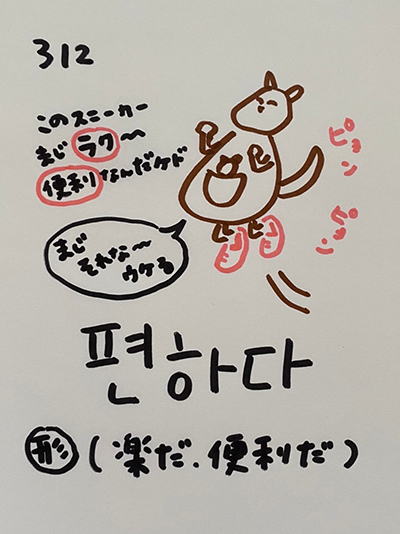 312
このスニーカー
まじラク〜
便利なんだケド
ピョン
ピョン
まじ
それな〜
ウケる
편하다
形(楽だ、便利だ)